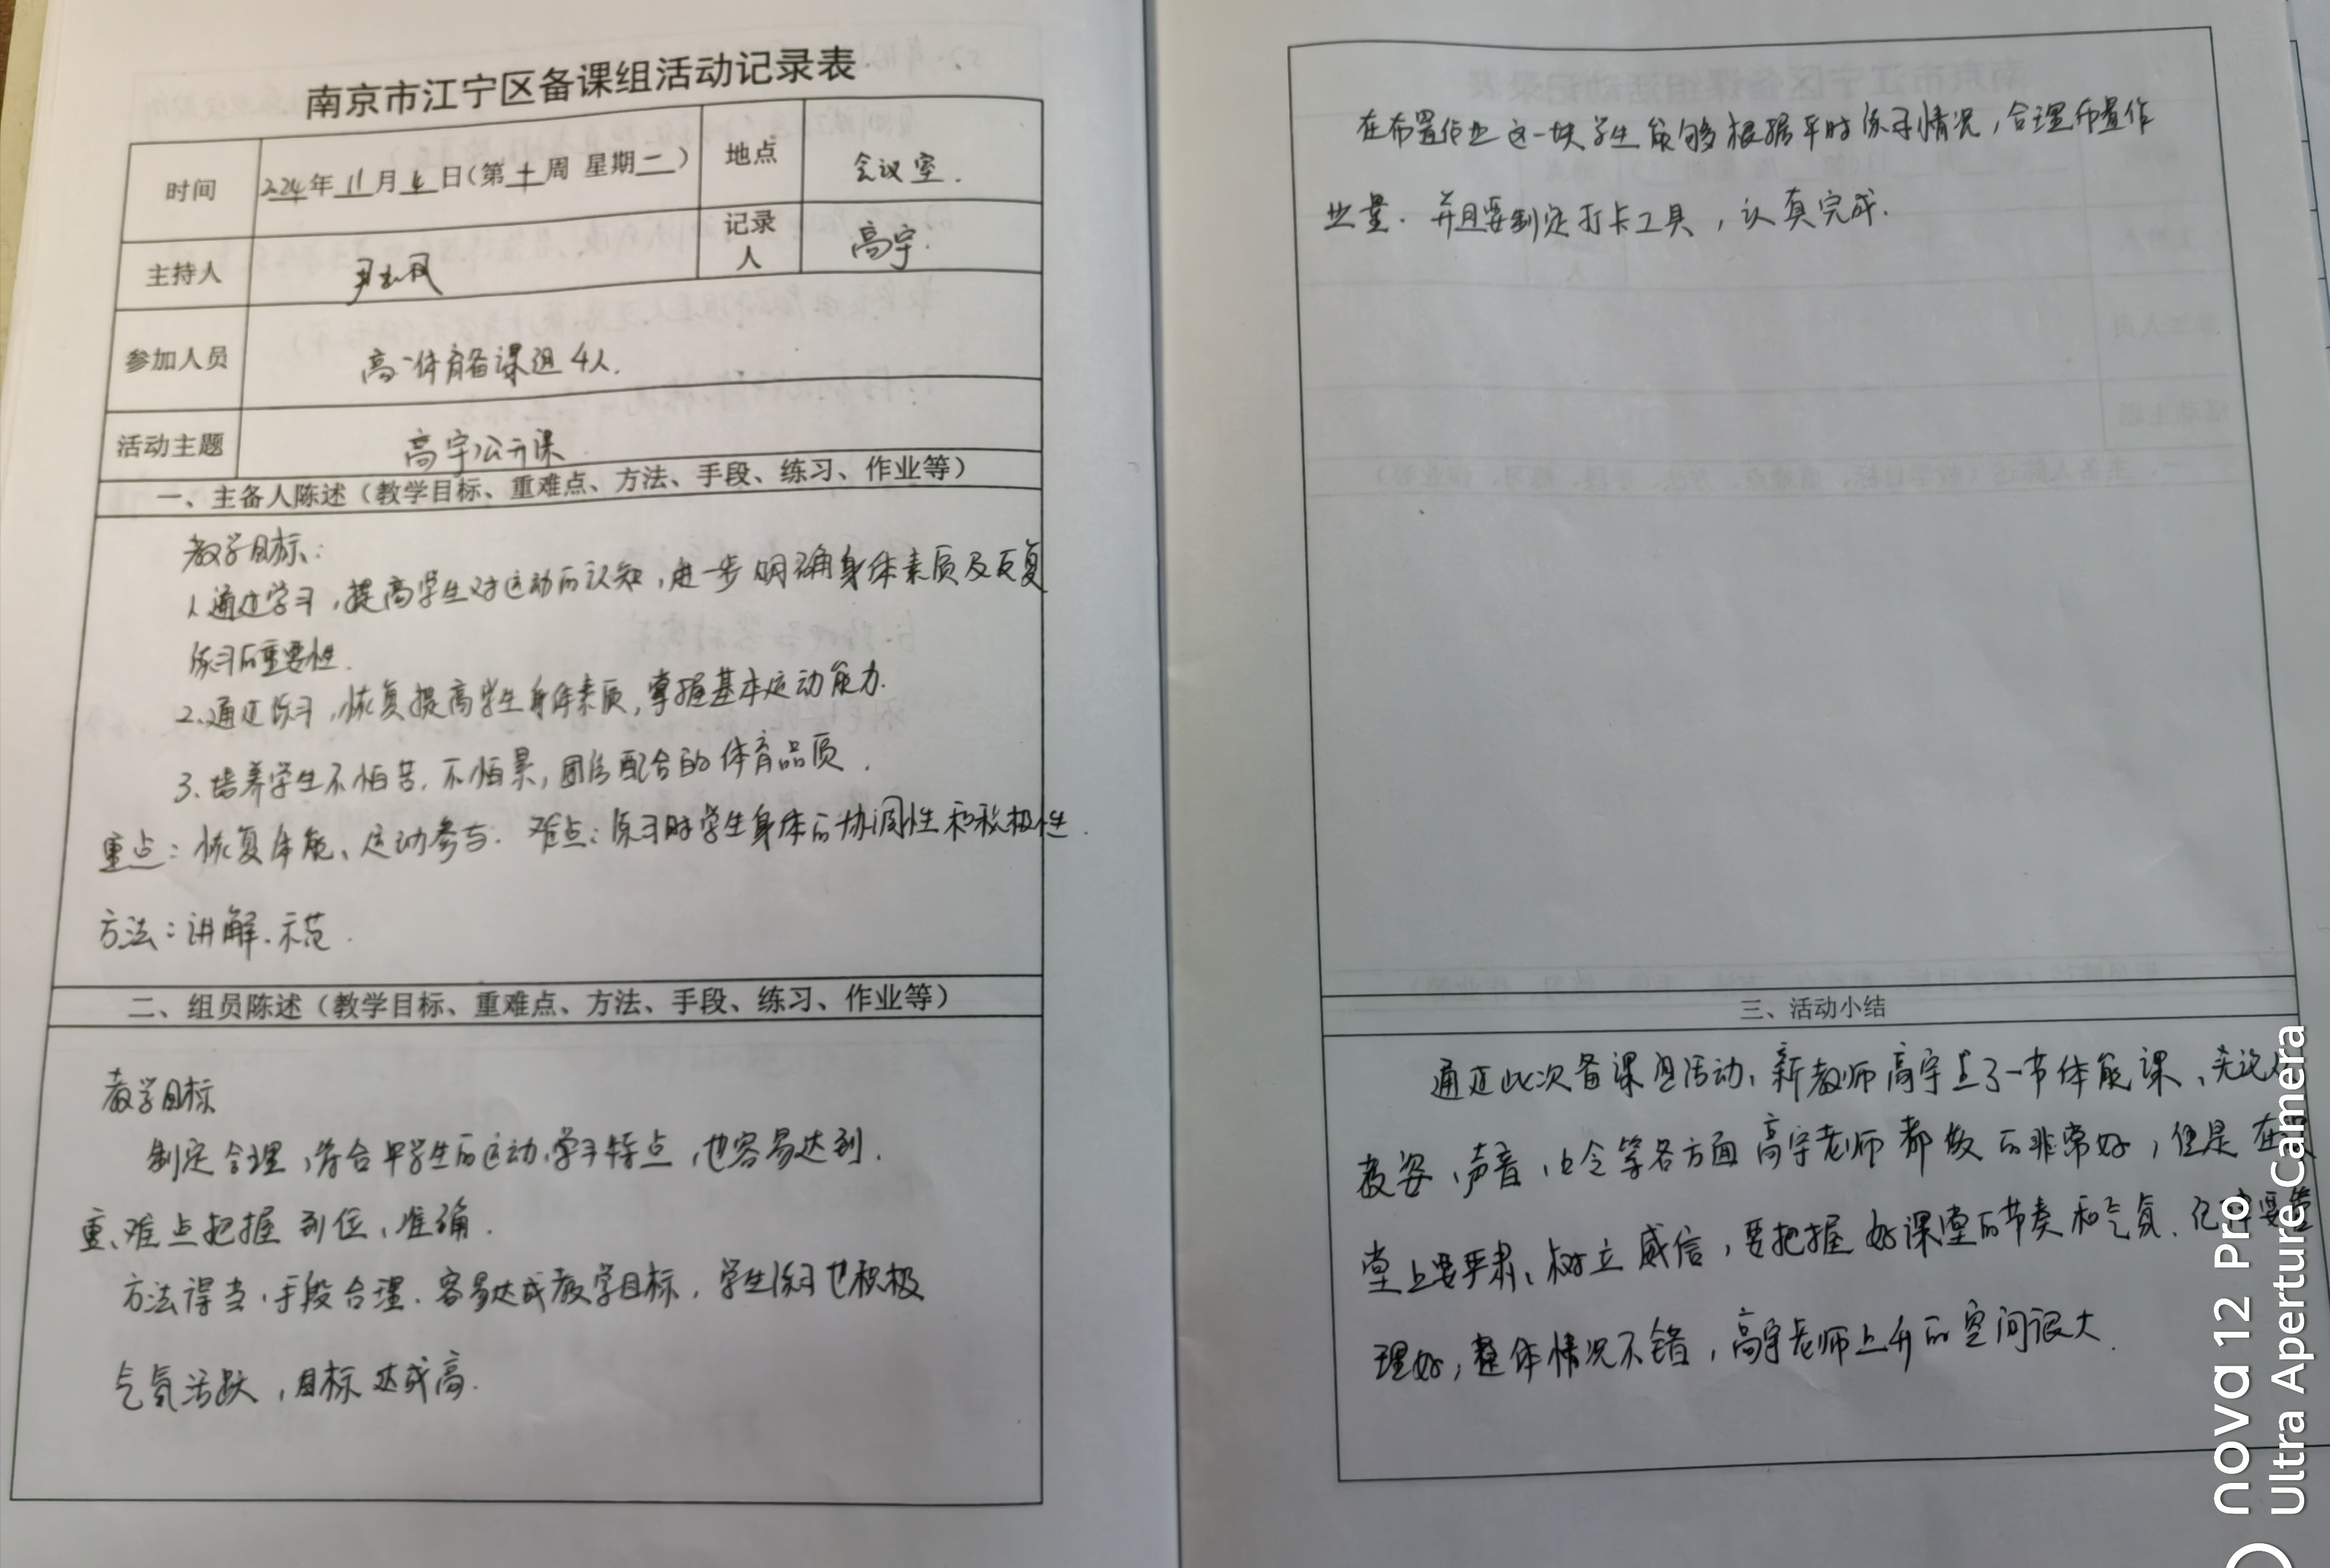 南京市江宁区备课组活动记录表
时间 2024年11月6日(第十周 星期二) 地点 会议室.
主持人 记录人 高宇.
参加人员 高一体育备课组4人.
活动主题 高宇公开课
一、主备人陈述（教学目标、重难点、方法、手段、练习、作业等）
教学目标:
1.通过学习,提高学生对运动的认知,进一步明确身体素质及反复
练习的重要性.
2.通过练习,恢复提高学生身体素质,掌握基本运动能力.
3.培养学生不怕苦.不怕累,团结配合的体育品质.
重点:恢复体能、运动参与. 难点:练习时学生身体的协调性和积极性.
方法:讲解.示范.
二、组员陈述（教学目标、重难点、方法、手段、练习、作业等）
教学目标
制定合理,符合中学生的运动、学习特点,也容易达到.
重、难点把握到位、准确.
方法得当,手段合理.容易达成教学目标,学生练习也积极
气氛活跃,目标达成高.
在布置作业这一块学生能够根据平时练习情况,合理布置作
业量.并且要制定打卡工具,认真完成.
三、活动小结
通过此次备课组活动,新教师高宇上了一节体能课,无论
教姿,声音,口令等各方面高宇老师都做的非常好,但是在
堂上要严肃、树立威信,要把握好课堂的节奏和气氛.
理好,整体情况不错,高宇老师上升的空间很大.
nova 12 Pro
Ultra Aperture Camera